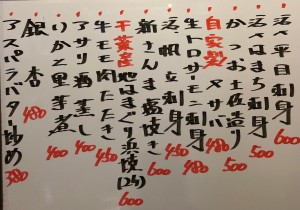 活〆平目刺身 600
活〆はまち刺身 500
かつお土佐造り 500
自家製〆サバ 480
生トロサーモン刺身 480
活帆立刺身 450
新さんま塩焼き 600
千葉産地はまぐり浜焼(2ヶ) 600
牛モモ肉たたき 450
アサリ酒蒸し 400
いかと里芋煮 400
銀杏 480
アスパラバター炒め 380